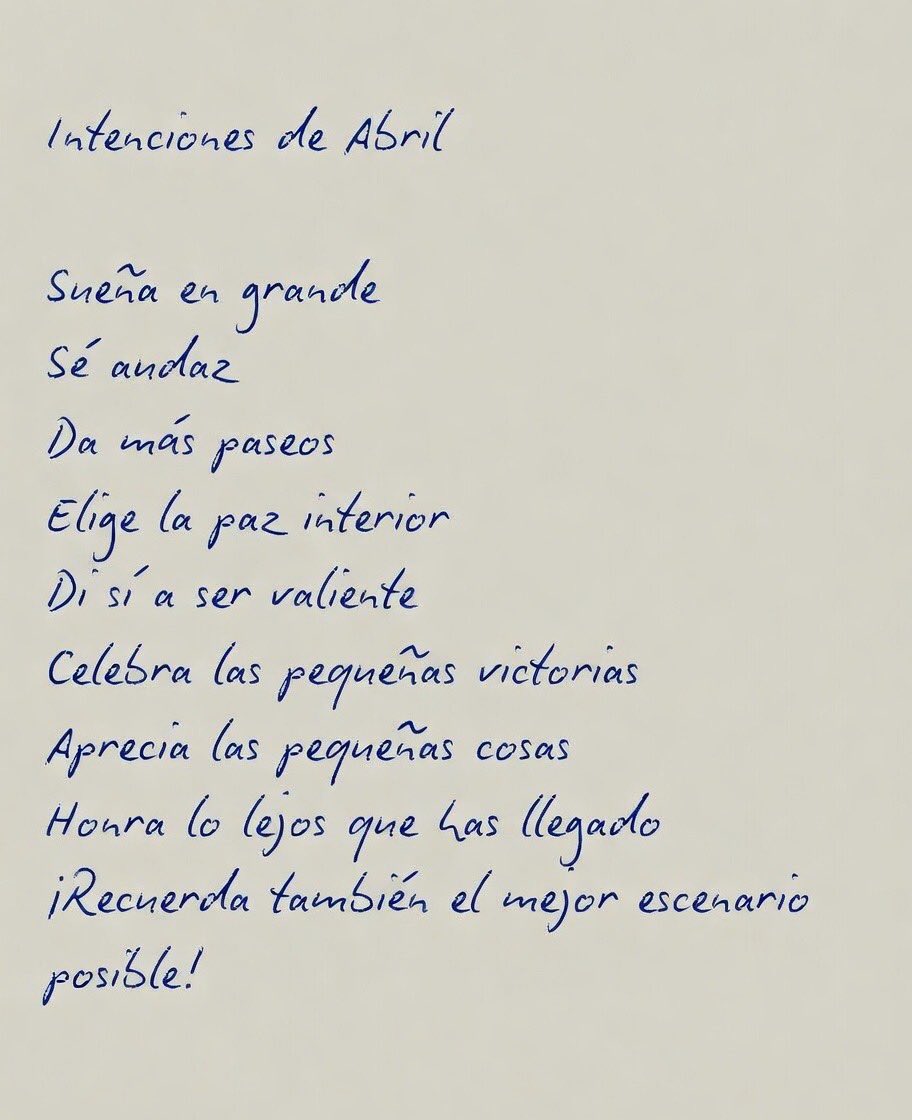 Intenciones de Abril
Sueña en grande
Sé audaz
Da más paseos
Elige la paz interior
Di sí a ser valiente
Celebra las pequeñas victorias
Aprecia las pequeñas cosas
Honra lo lejos que has llegado
¡Recuerda también el mejor escenario
posible!